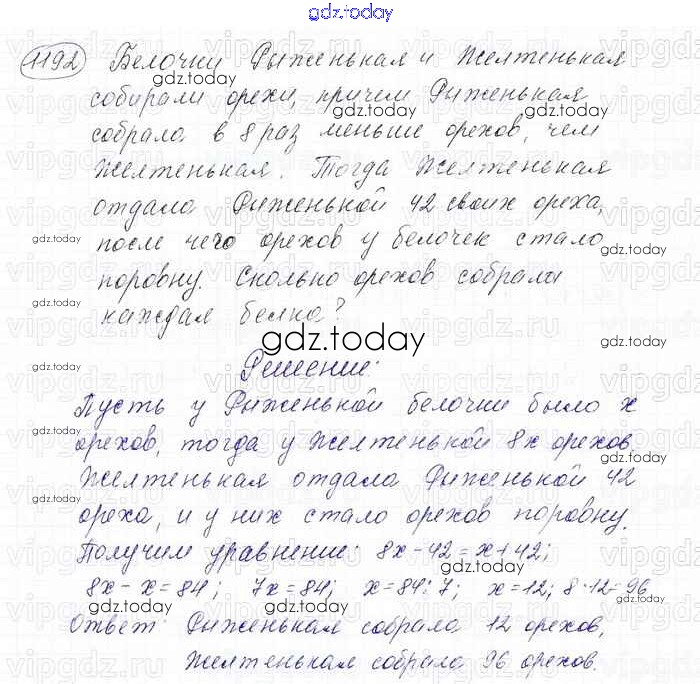 gdz.today
1192 Белочки Рыженькая и Желтенькая
собирали орехи, причем Рыженькая
собрала в 8 раз меньше орехов, чем
Желтенькая. Тогда Желтенькая
отдала Рыженькой 42 своих ореха,
после чего орехов у белочек стало
поровну. Сколько орехов собрали
каждая белка?
gdz.today
Решение:
Пусть у Рыженькой белочки было x
орехов, тогда у Желтенькой 8x орехов.
Желтенькая отдала Рыженькой 42
ореха, и у них стало орехов поровну.
Получим уравнение: 8x-42=x+42;
8x-x=84; 7x=84; x=84:7; x=12; 8·12=96
Ответ: Рыженькая собрала 12 орехов,
Желтенькая собрала 96 орехов.